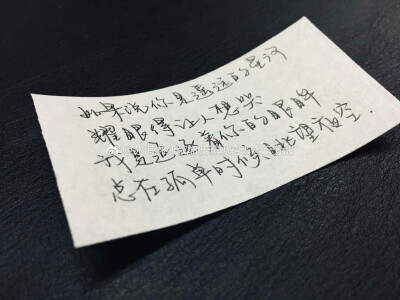 如果说你是遥远的星河
耀眼得让人想哭
我是追逐着你的眼眸
总在孤单时候眺望夜空.